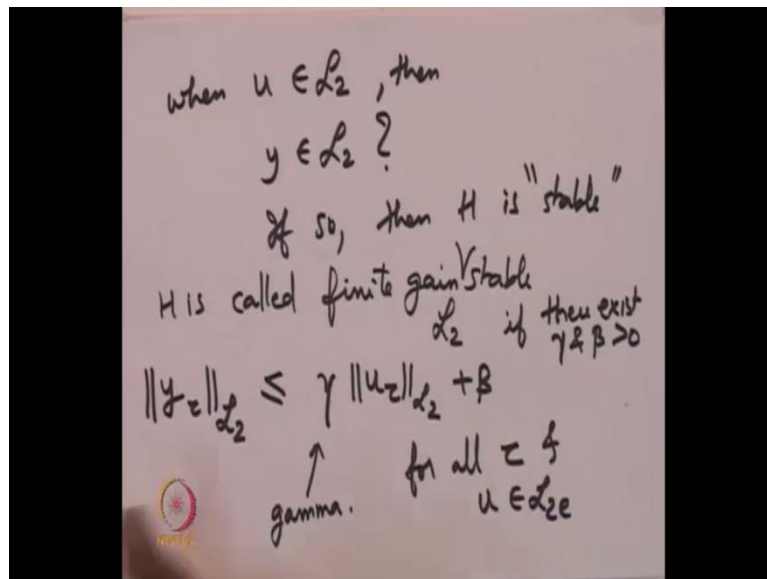 when u ∈ ℒ₂, then
y ∈ ℒ₂ ?
If so, then H is "stable"
H is called finite gain √ stable
ℒ₂ if then exist
γ & β > 0
‖y_τ‖_ℒ₂ ≤ γ ‖u_τ‖_ℒ₂ + β
for all τ &
gamma. u ∈ ℒ₂e
NPTEL